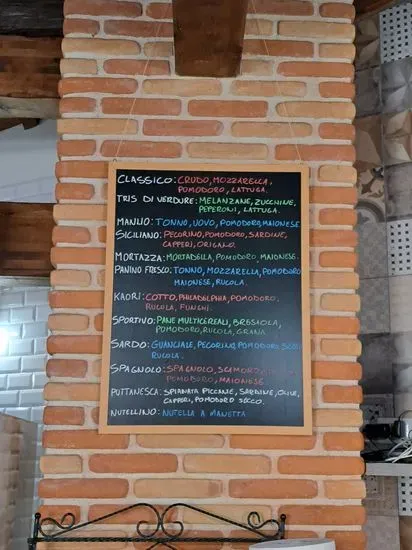 CLASSICO: CRUDO, MOZZARELLA,
POMODORO, LATTUGA.
TRIS DI VERDURE: MELANZANE, ZUCCHINE,
PEPERONI, LATTUGA.
MANLIO: TONNO, UOVO, POMODORO, MAIONESE
SICILIANO: PECORINO, POMODORO, SARDINE,
CAPPERI, ORIGANO.
MORTAZZA: MORTADELLA, POMODORO, MAIONESE.
PANINO FRESCO: TONNO, MOZZARELLA, POMODORO
MAIONESE, RUCOLA.
KAORI: COTTO, PHILADELPHIA, POMODORO,
RUCOLA, FUNGHI.
SPORTIVO: PANE MULTICEREALI, BRESAOLA,
POMODORO, RUCOLA, GRANA.
SARDO: GUANCIALE, PECORINO, POMODORO SECCO
RUCOLA.
SPAGNOLO: SPAGNOLO,
POMODORO, MAIONESE
PUTTANESCA: SPIANATA PICCANTE, SARDINE, OLIVE,
CAPPERI, POMODORO SECCO.
NUTELLINO: NUTELLA A MANETTA